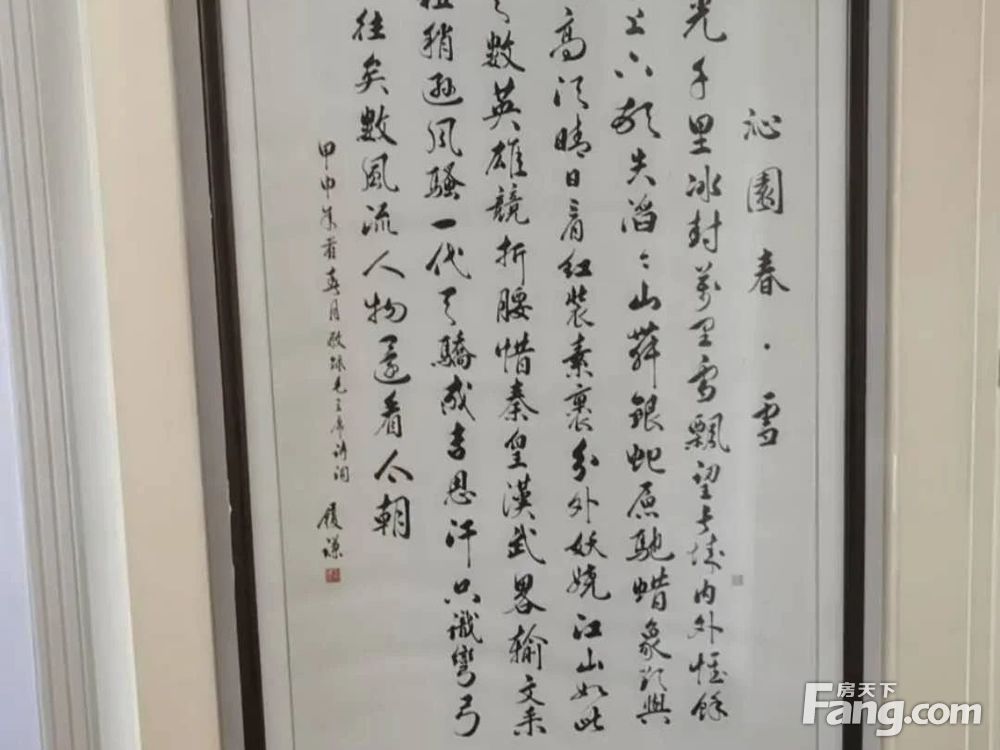 沁園春·雪
光千里冰封萬里雪飄望長城內外惟餘
上下頓失滔〻山舞銀蛇原馳蜡象欲與
高須晴日看紅裝素裹分外妖嬈江山如此
數英雄競折腰惜秦皇漢武畧輸文采
祖稍遜風騷一代天驕成吉思汗只識彎弓
往矣數風流人物還看今朝
甲申年春月敬錄毛主席詩詞
履謙
房天下
Fang.com